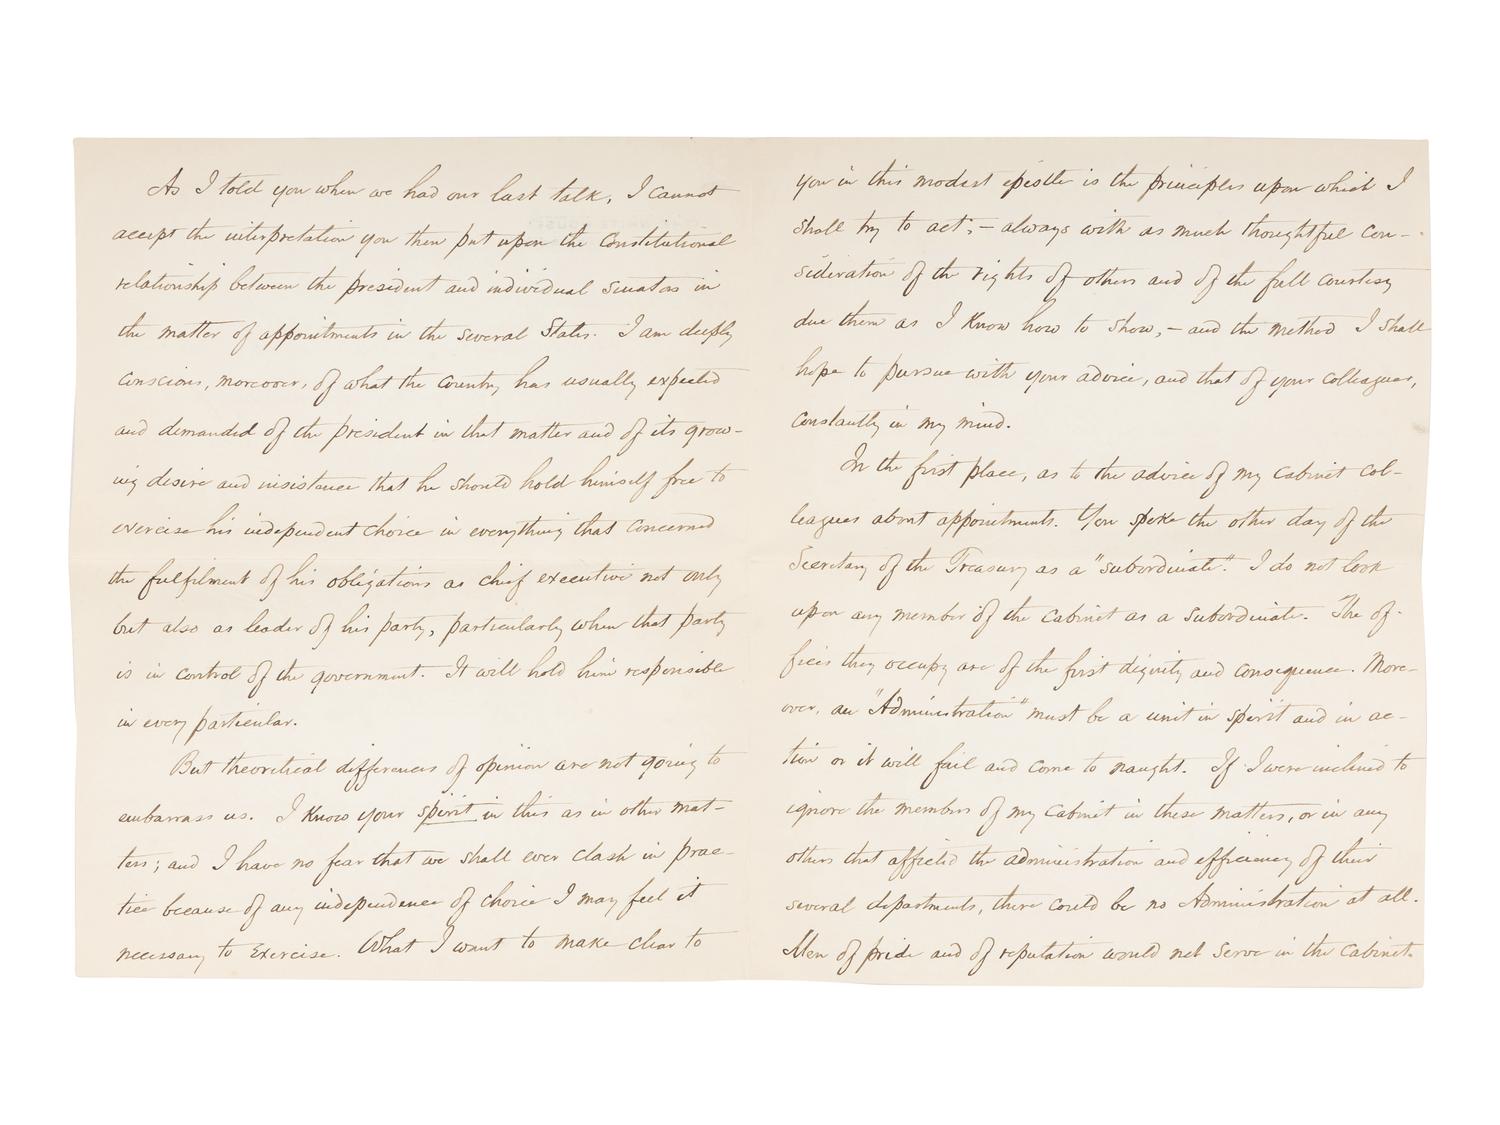 As I told you when we had our last talk, I cannot
accept the interpretation you then put upon the Constitutional
relationship between the president and individual Senators in
the matter of appointments in the several States. I am deeply
conscious, moreover, of what the country has usually expected
and demanded of the president in that matter and of its grow-
ing desire and insistence that he should hold himself free to
exercise his independent choice in everything that concerned
the fulfilment of his obligations as chief executive not only
but also as leader of his party, particularly when that party
is in control of the government. It will hold him responsible
in every particular.
But theoretical differences of opinion are not going to
embarrass us. I know your spirit in this as in other mat-
ters; and I have no fear that we shall ever clash in prac-
tice because of any independence of choice I may feel it
necessary to exercise. What I want to make clear to
you in this modest epistle is the principles upon which I
shall try to act,—always with as much thoughtful con-
sideration of the rights of others and of the full courtesy
due them as I know how to show,—and the method I shall
hope to pursue with your advice, and that of your colleagues,
constantly in my mind.
In the first place, as to the advice of my cabinet col-
leagues about appointments. You spoke the other day of the
Secretary of the Treasury as a "subordinate". I do not look
upon any member of the cabinet as a subordinate. The of-
fices they occupy are of the first dignity and consequence. More-
over, an "Administration" must be a unit in spirit and in ac-
tion or it will fail and come to naught. If I were inclined to
ignore the members of my cabinet in these matters, or in any
others that affected the administration and efficiency of their
several departments, there could be no Administration at all.
Men of pride and of reputation would not serve in the cabinet.